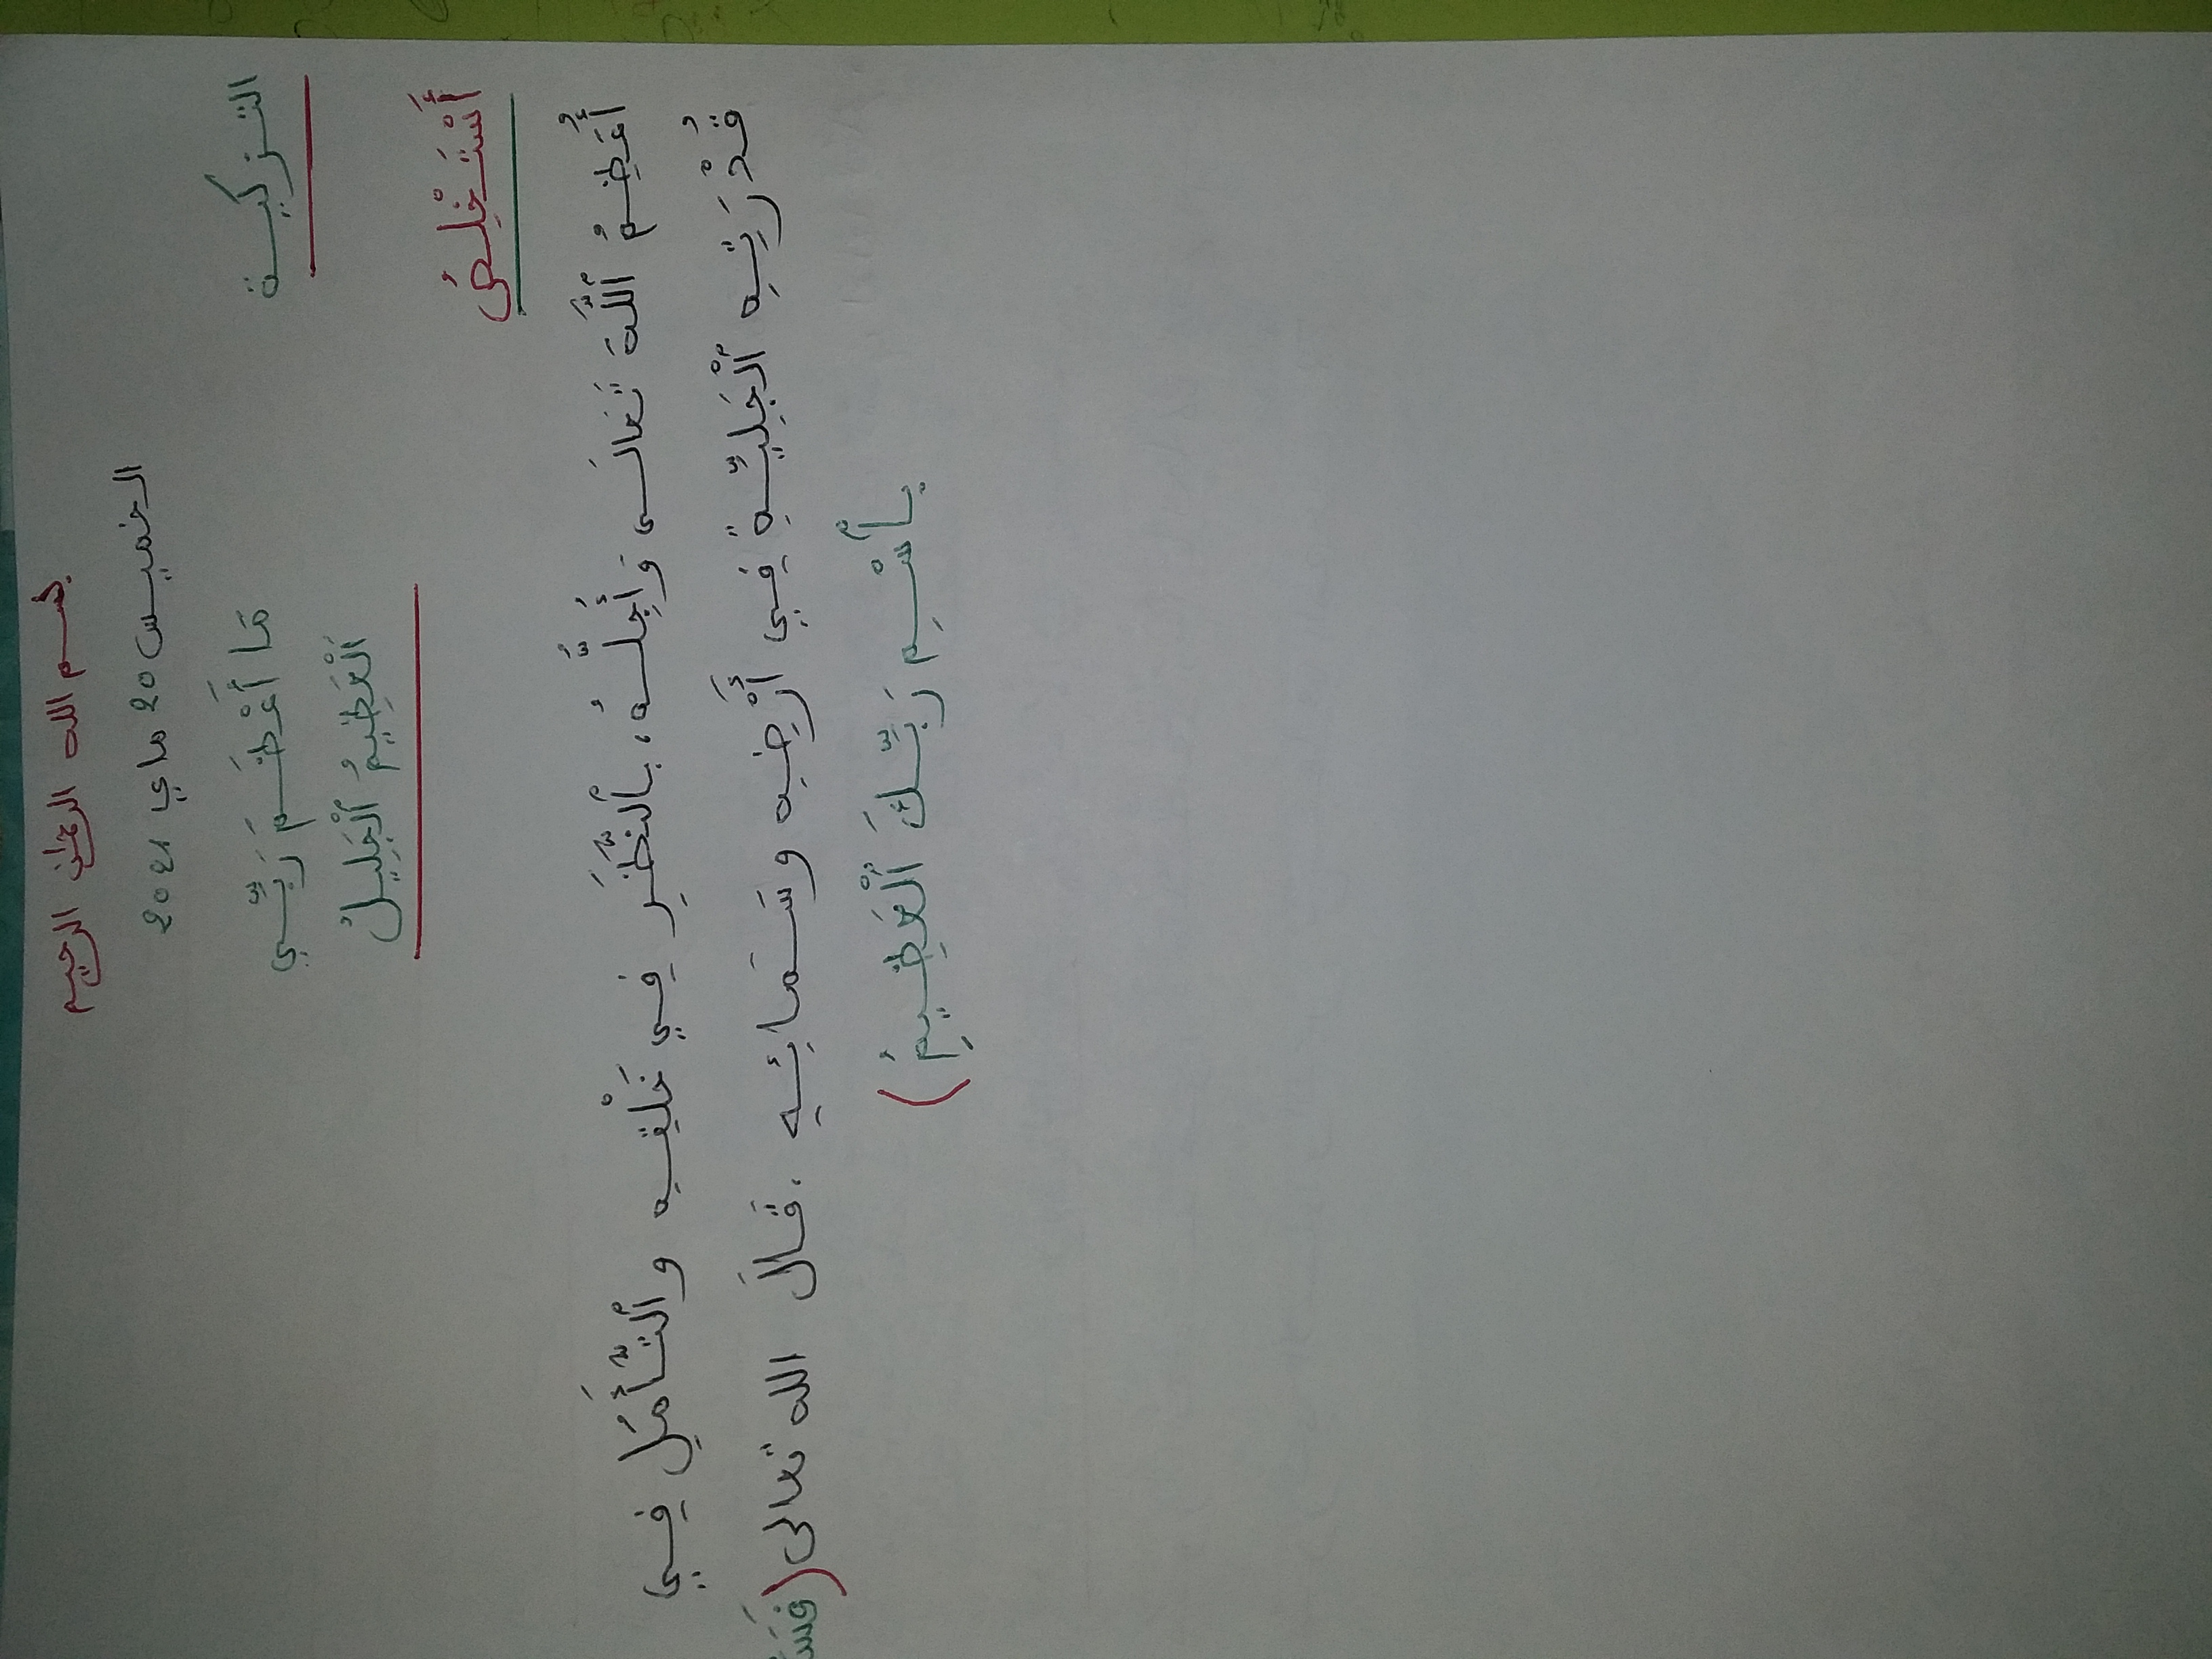 بسم الله الرحمان الرحيم
الخميس 20 ماي 2021
التزكية مَا أَعْظَمَ رَبِّي
اَلْعَظِيمُ ٱلْجَلِيلُ
أَسْتَخْلِصُ
أُعَظِمُ ٱللَّهَ تَعَالَى وَأُجِلُّهُ، بٱلنَّظَرِ فِي خَلْقِهِ وٱلتَّأَمُلِ فِي
قُدْرَتِهِ ٱلْجَلِيَّةِ فِي أَرْضِهِ وسَمَائِهِ . قَالَ الله تعالى (
بٱسْمِ رَبِّكَ ٱلْعَظِيمُِ)